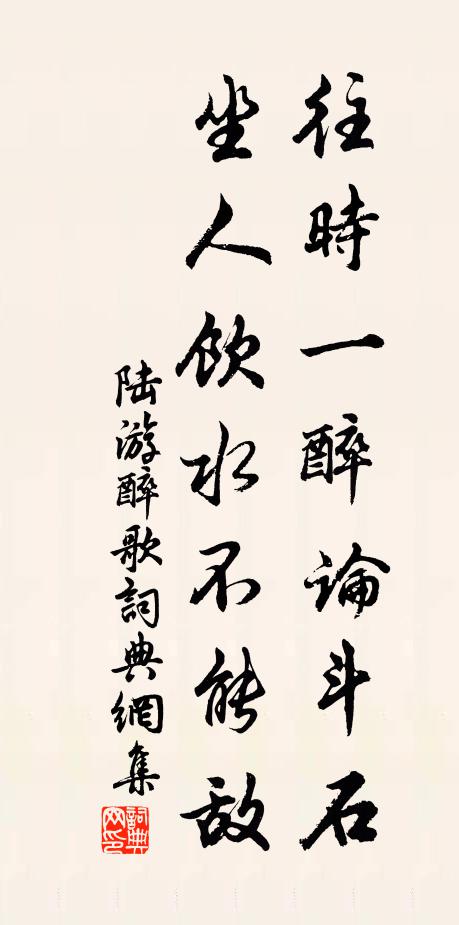 往時一醉論斗石
坐人飲水不能敵
陆游醉歌詞典網集
詞典网印